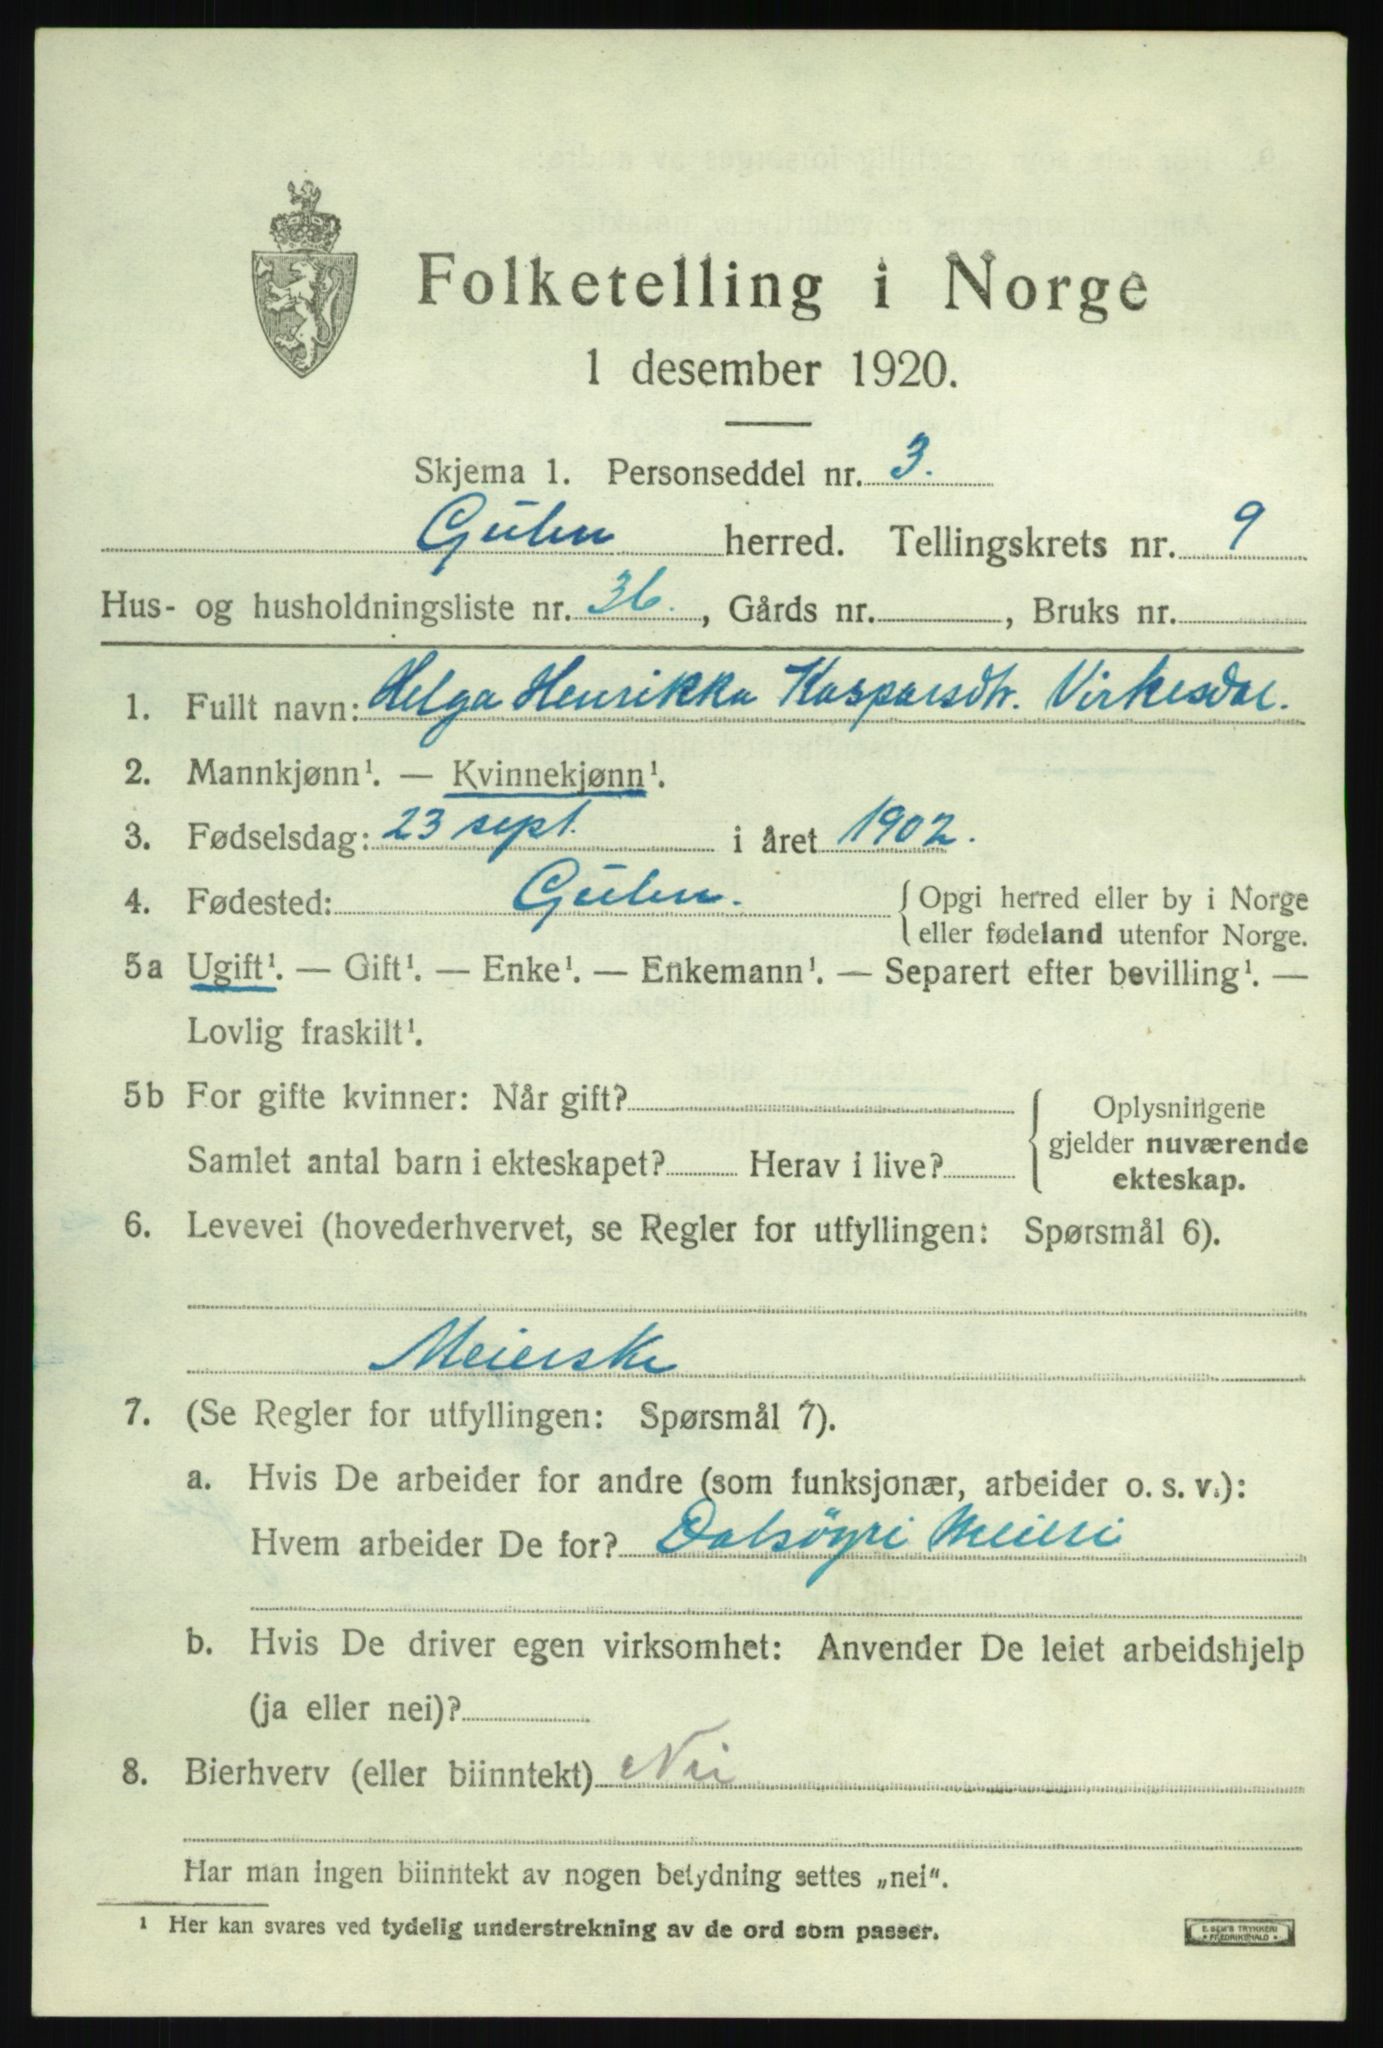 Folketelling i Norge
1 desember 1920.
Skjema 1. Personseddel nr. 3.
Gulen herred. Tellingskrets nr. 9
Hus- og husholdningsliste nr. 36., Gårds nr. , Bruks nr.
1. Fullt navn: Helga Henrikka Kasparsdtr. Virkesdal.
2. Mannkjønn¹. — Kvinnekjønn¹.
3. Fødselsdag: 23 sept. i året 1902.
4. Fødested: Gulen. { Opgi herred eller by i Norge
eller fødeland utenfor Norge.
5a Ugift¹. — Gift¹. — Enke¹. — Enkemann¹. — Separert efter bevilling¹. —
Lovlig fraskilt¹.
5b For gifte kvinner: Når gift? { Oplysningene
gjelder nuværende
Samlet antal barn i ekteskapet? Herav i live?
ekteskap.
6. Levevei (hovederhvervet, se Regler for utfyllingen: Spørsmål 6).
Meierske
7. (Se Regler for utfyllingen: Spørsmål 7).
a. Hvis De arbeider for andre (som funksjonær, arbeider o. s. v.):
Hvem arbeider De for? Dalsöyri Meieri
b. Hvis De driver egen virksomhet: Anvender De leiet arbeidshjelp
(ja eller nei)?
8. Bierhverv (eller biinntekt) Nei
Har man ingen biinntekt av nogen betydning settes „nei“.
¹ Her kan svares ved tydelig understrekning av de ord som passer.
E. SEM'S TRYKKERI
• FREDRIKSHALD •